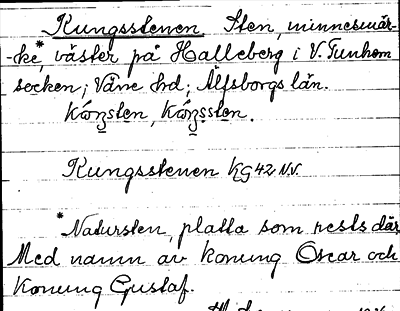 Kungsstenen Sten, minnesmär-
-ke*, väster på Halleberg i V. Tunhem
socken; Väne hd; Älfsborgs län.
Kungsstenen KG42 N.V.
*Natursten, platta som rests där
Med namn av konung Oscar och
Konung Gustaf.